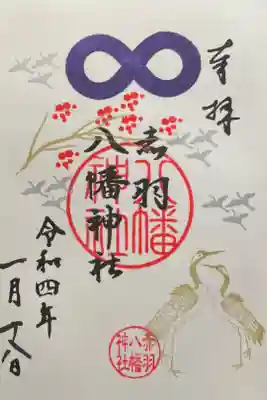 奉拝
赤羽
八幡神社
令和四年
一月十八日
赤羽
八幡
神社